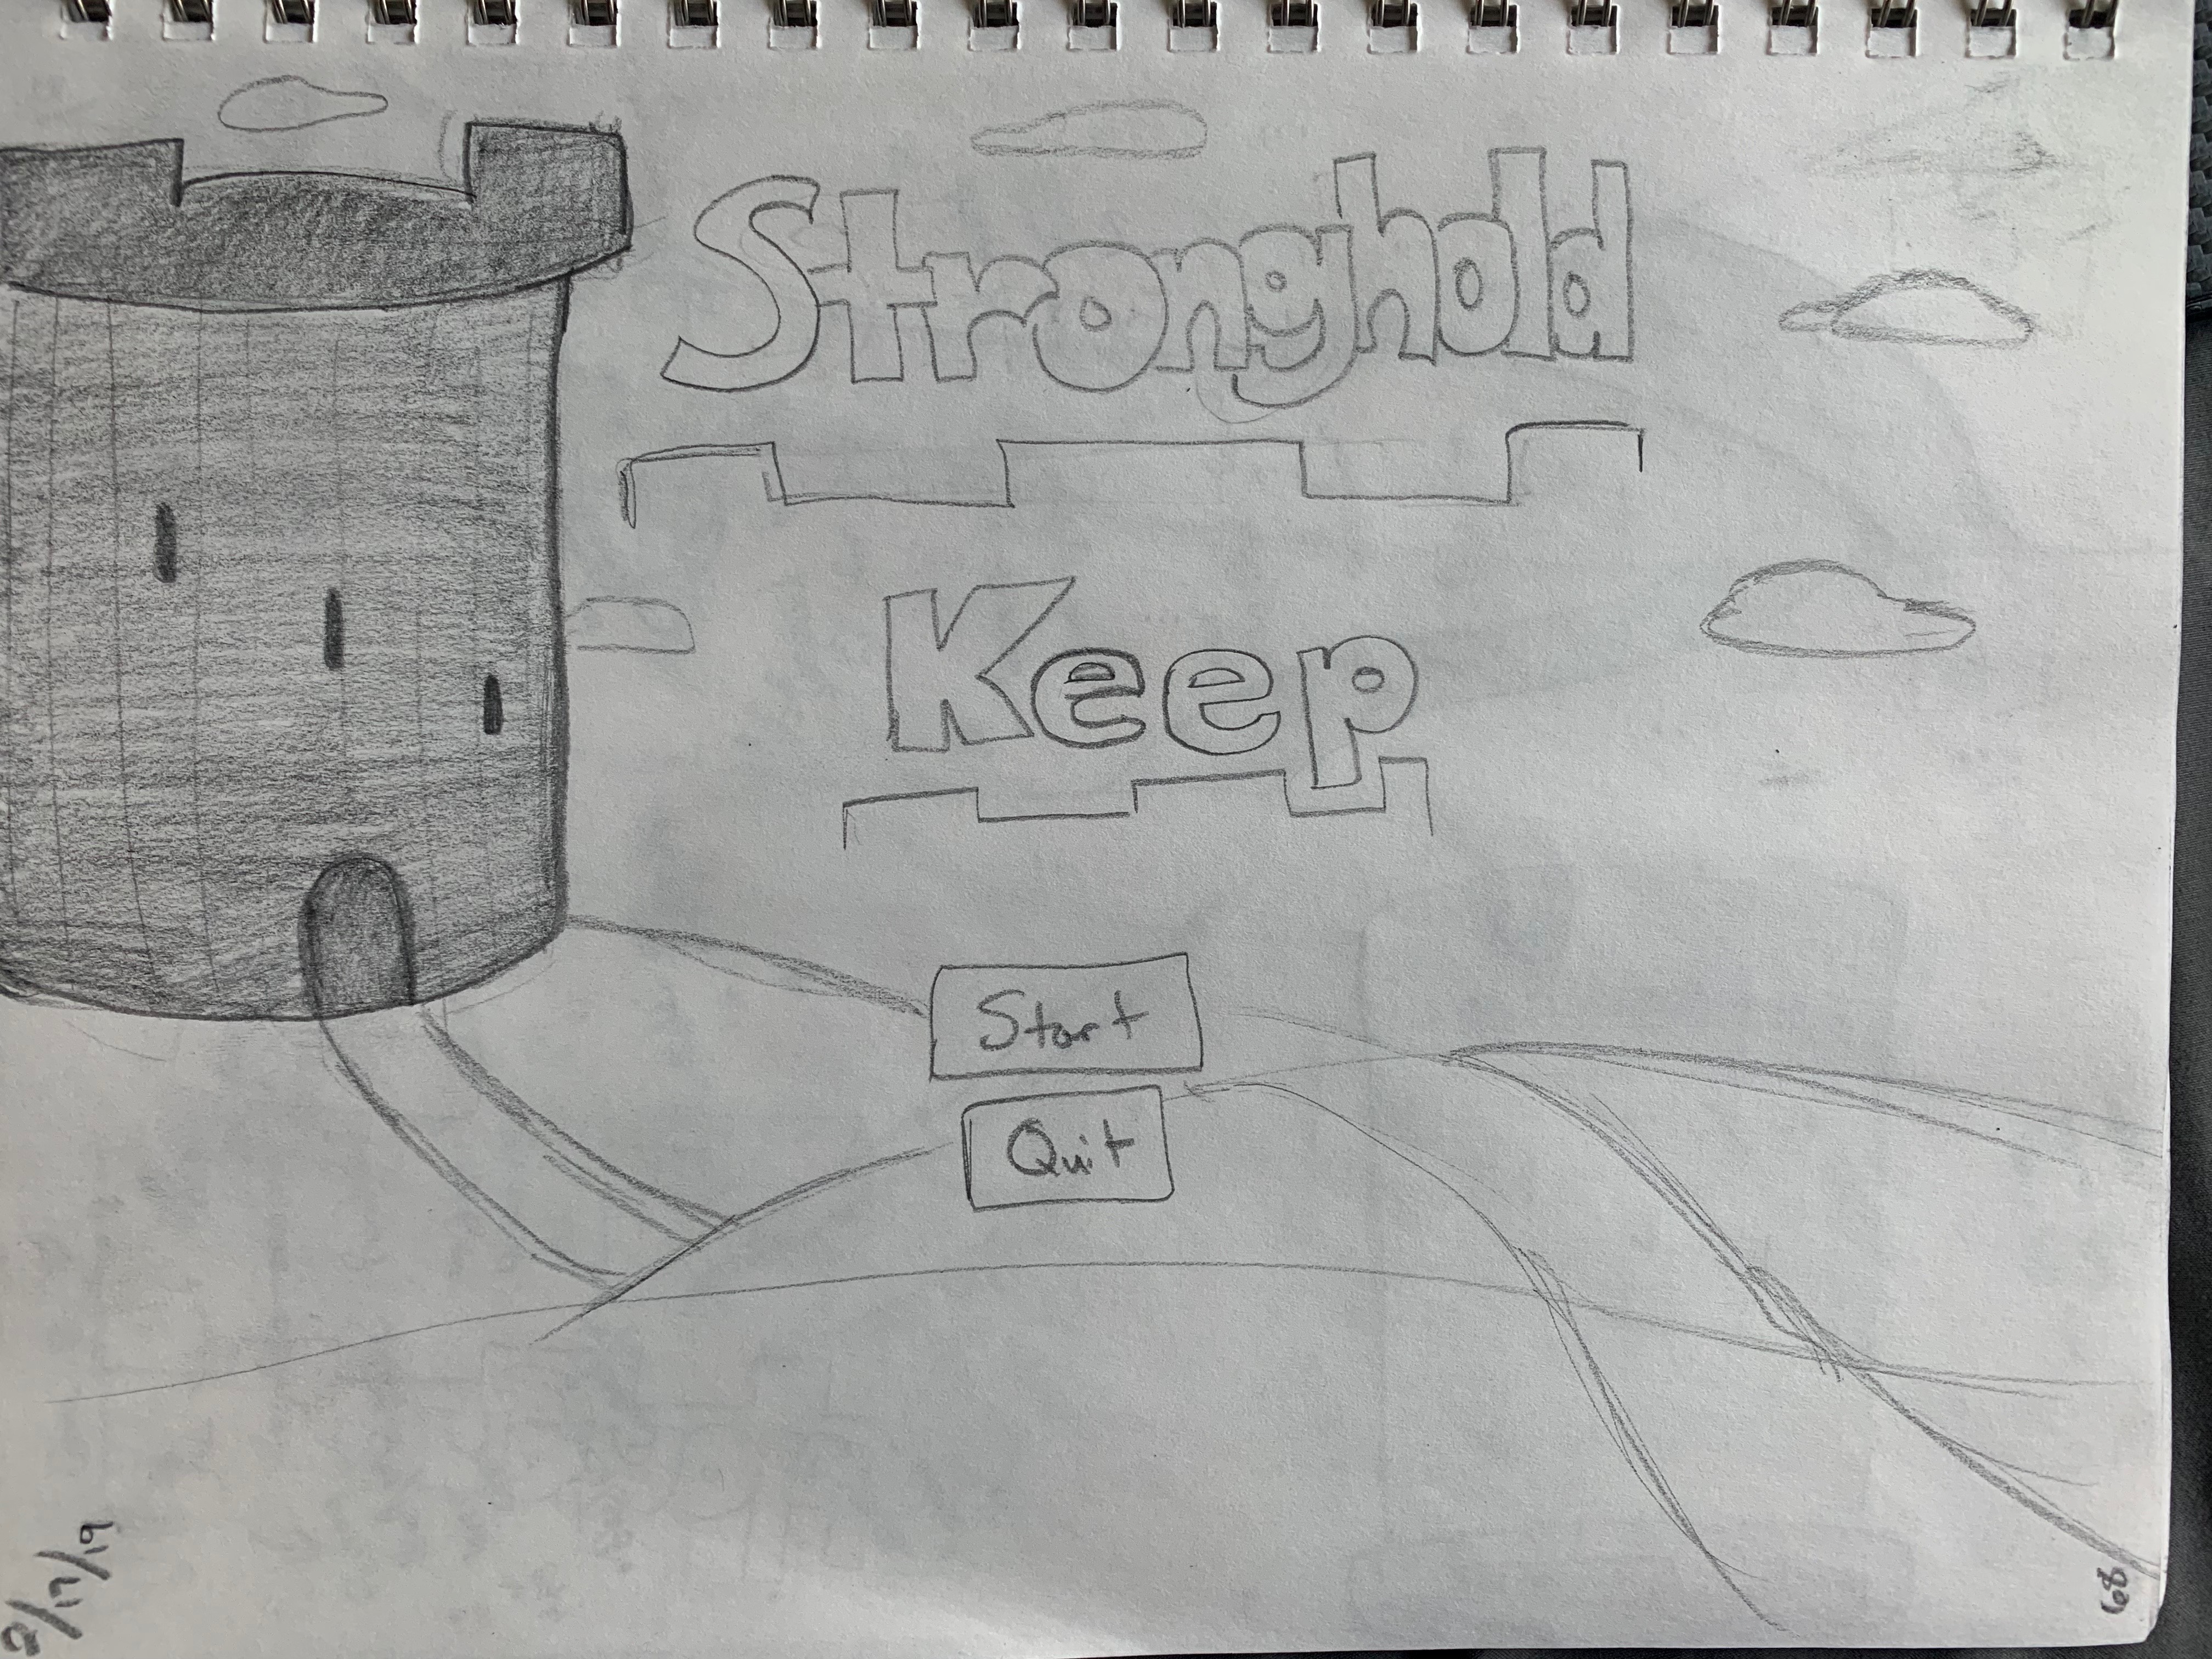 Stronghold
Keep
Start
Quit
2/17/19
68